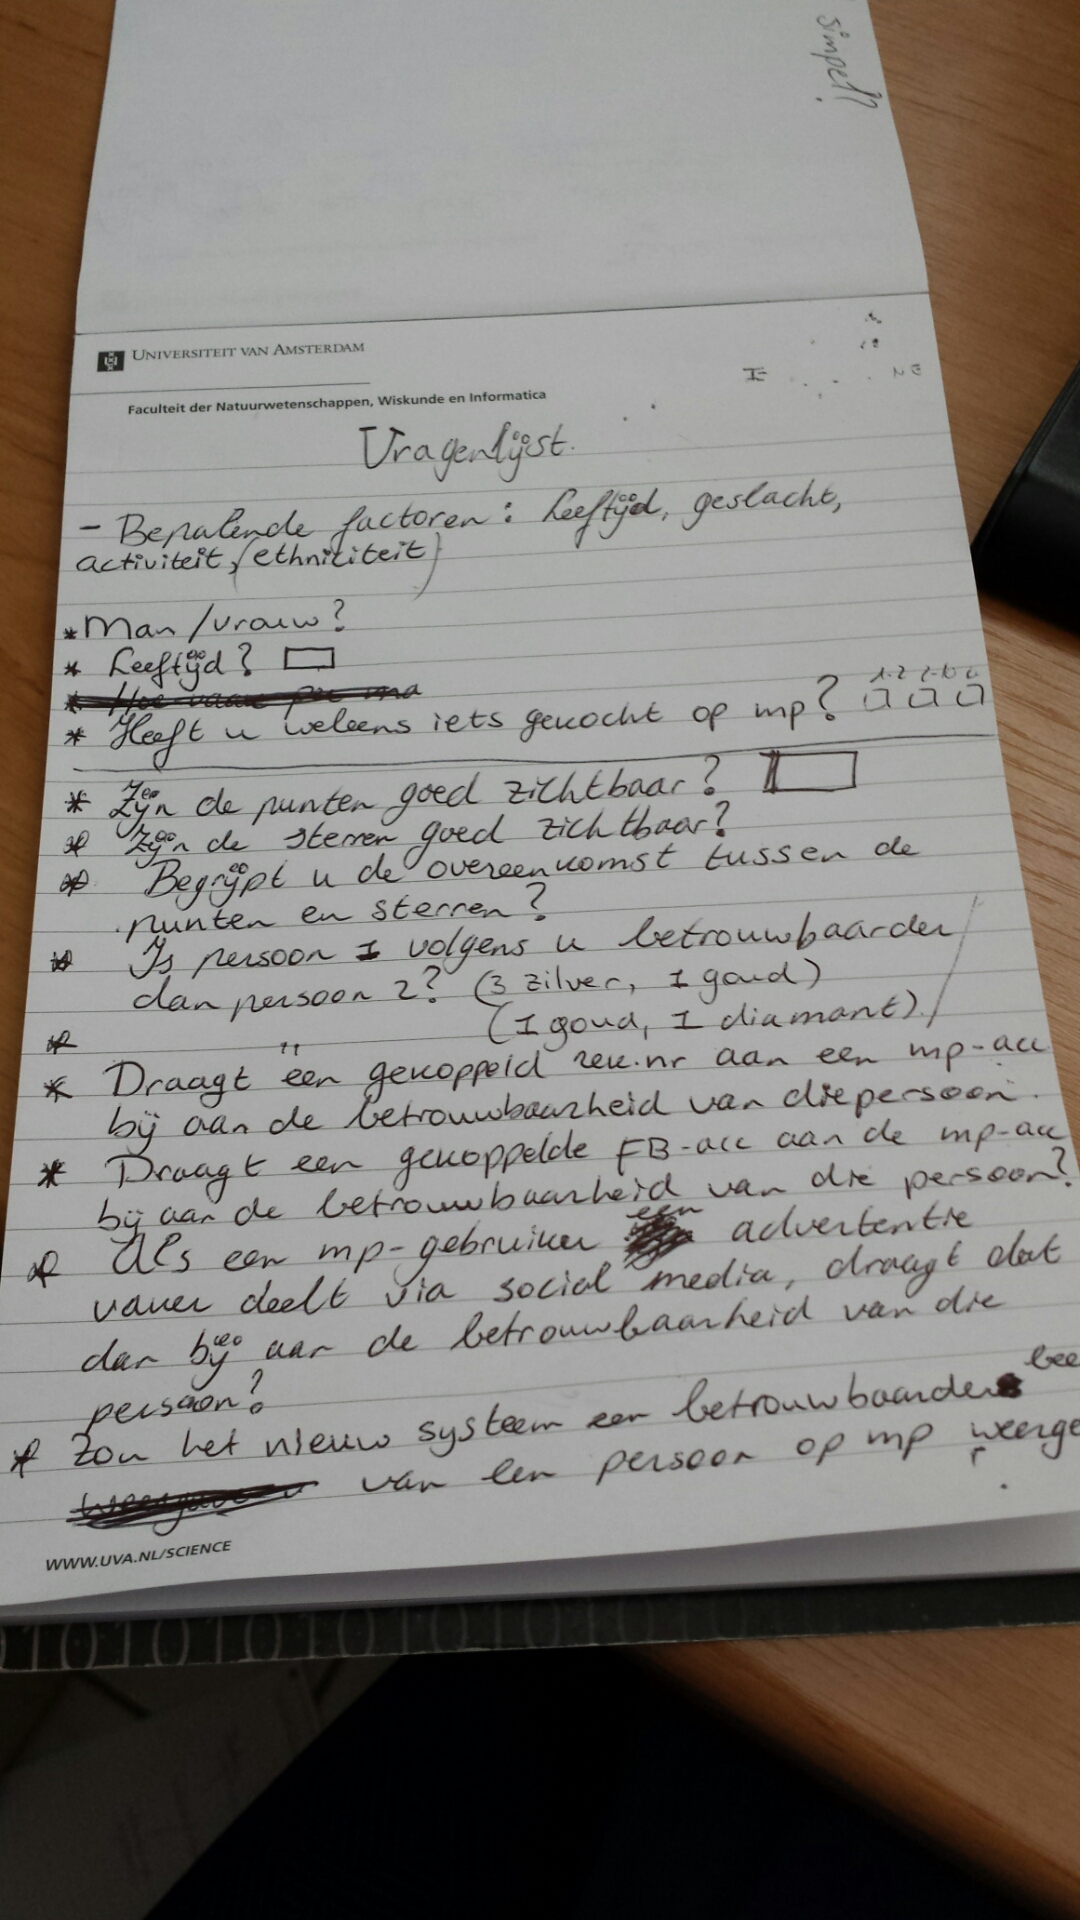 simpel?
UNIVERSITEIT VAN AMSTERDAM
Faculteit der Natuurwetenschappen, Wiskunde en Informatica
Vragenlijst.
- Bepalende factoren: leeftijd, geslacht,
activiteit, (ethniciteit)
* Man/vrouw?
* Leeftijd?
* Heeft u weleens iets gekocht op mp?
* Zijn de punten goed zichtbaar?
* Zijn de sterren goed zichtbaar?
* Begrijpt u de overeenkomst tussen de
punten en sterren?
* Is persoon 1 volgens u betrouwbaarder
dan persoon 2? (3 zilver, 1 goud)
* " (1 goud, 1 diamant)
* Draagt een gekoppeld rek.nr aan een mp-acc
bij aan de betrouwbaarheid van die persoon.
* Draagt een gekoppelde FB-acc aan de mp-acc
bij aan de betrouwbaarheid van die persoon?
* Als een mp-gebruiker een advertentie
vaker deelt via social media, draagt dat
dan bij aan de betrouwbaarheid van die
persoon?
* Zou het nieuw systeem een betrouwbaarder bee
van een persoon op mp weerge
WWW.UVA.NL/SCIENCE